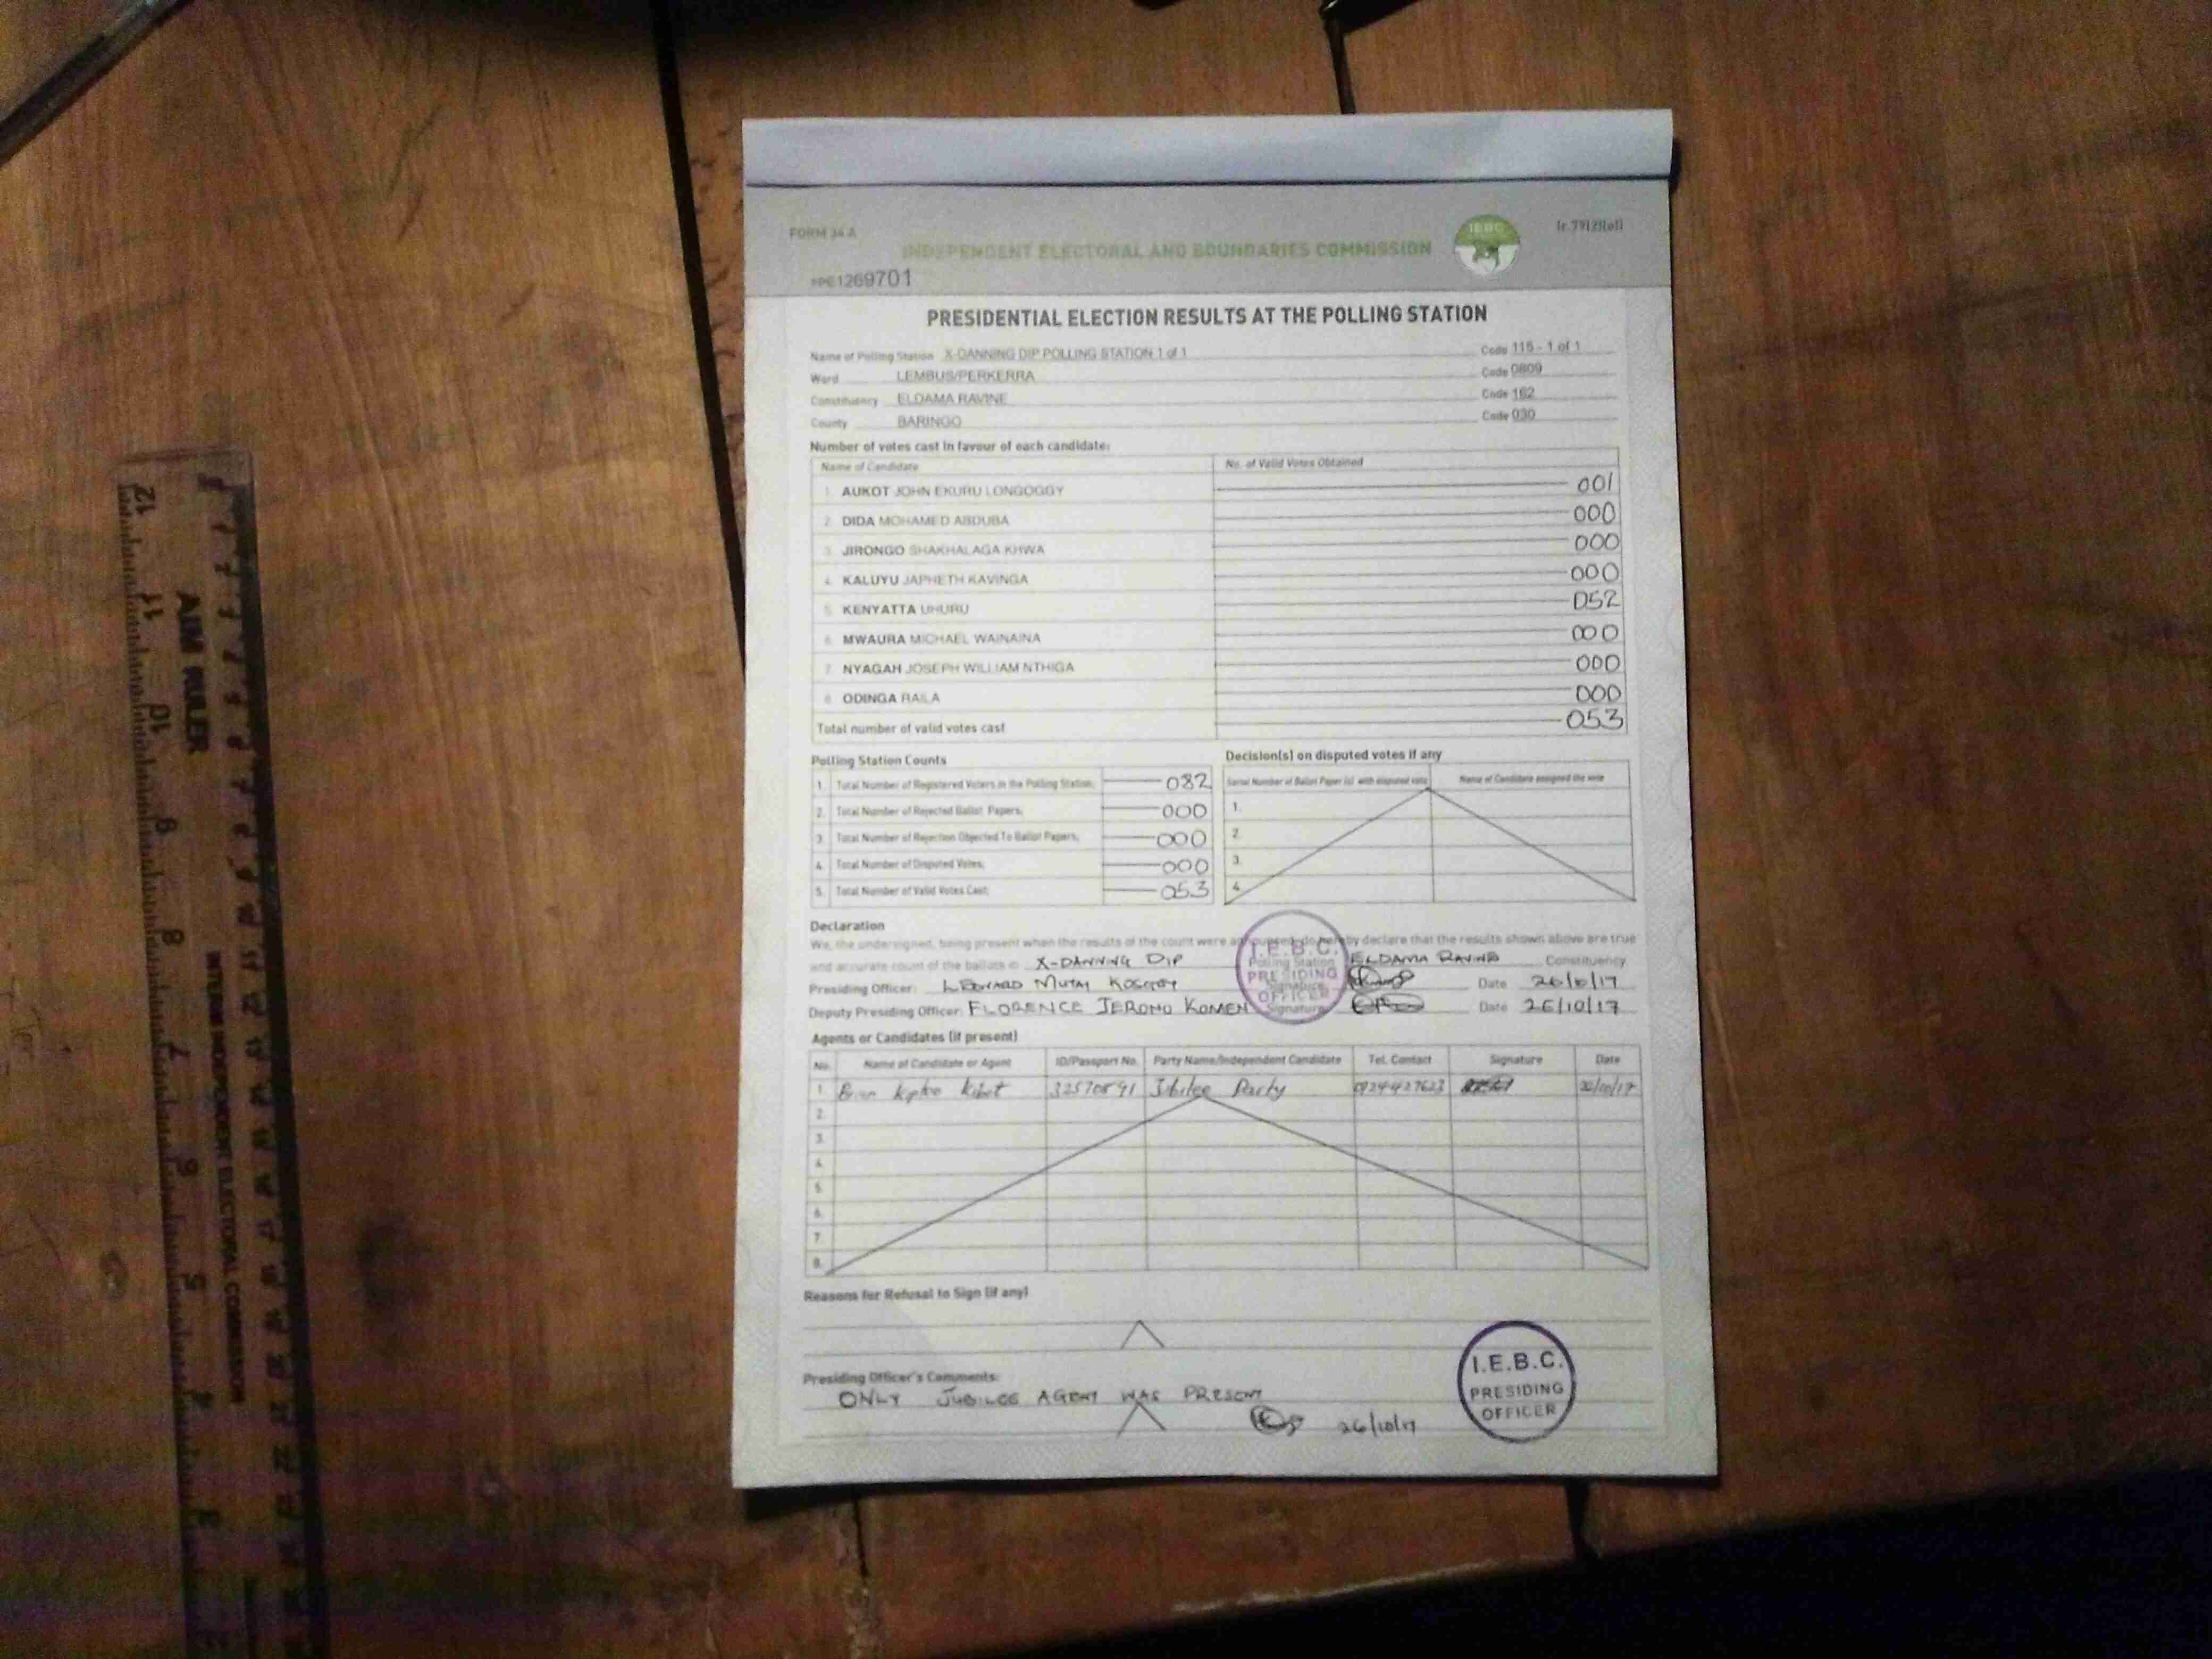 FORM 34 A
(r.79(2)(a))
INDEPENDENT ELECTORAL AND BOUNDARIES COMMISSION
IEBC
1269701
PRESIDENTIAL ELECTION RESULTS AT THE POLLING STATION
Name of Polling Station X-DANNING DIP POLLING STATION 1 of 1 Code 115 - 1 of 1
Ward LEMBUS/PERKERRA Code 0809
Constituency ELDAMA RAVINE Code 162
County BARINGO Code 030
Number of votes cast in favour of each candidate:
Name of Candidate No. of Valid Votes Obtained
1. AUKOT JOHN EKURU LONGOGGY 001
2. DIDA MOHAMED ABDUBA 000
3. JIRONGO SHAKHALAGA KHWA 000
4. KALUYU JAPHETH KAVINGA 000
5. KENYATTA UHURU 052
6. MWAURA MICHAEL WAINAINA 000
7. NYAGAH JOSEPH WILLIAM NTHIGA 000
8. ODINGA RAILA 000
Total number of valid votes cast 053
Polling Station Counts
1. Total Number of Registered Voters in the Polling Station: 082
2. Total Number of Rejected Ballot Papers: 000
3. Total Number of Rejection Objected To Ballot Papers: 000
4. Total Number of Disputed Votes: 000
5. Total Number of Valid Votes Cast: 053
Decision(s) on disputed votes if any
Serial Number of Ballot Paper (s) with disputed vote Name of Candidate assigned the vote
1.
2.
3.
4.
Declaration
We, the undersigned, being present when the results of the count were announced, do hereby declare that the results shown above are true
and accurate count of the ballots in X-DANNING DIP Polling Station ELDAMA RAVINE Constituency
Presiding Officer: LEONARD MUTAI KOSGEY Signature Date 26/10/17
Deputy Presiding Officer: FLORENCE JERONO KOMEN Signature Date 26/10/17
I.E.B.C.
PRESIDING
OFFICER
Agents or Candidates (if present)
No. Name of Candidate or Agent ID/Passport No. Party Name/Independent Candidate Tel. Contact Signature Date
1. Kiptoo Kibet Jubilee Party 26/10/17
2.
3.
4.
5.
6.
7.
8.
Reasons for Refusal to Sign (if any)
Presiding Officer's Comments:
ONLY JUBILEE AGENT WAS PRESENT
26/10/17
I.E.B.C.
PRESIDING
OFFICER
AIM RULER
INTERIM INDEPENDENT ELECTORAL COMMISSION